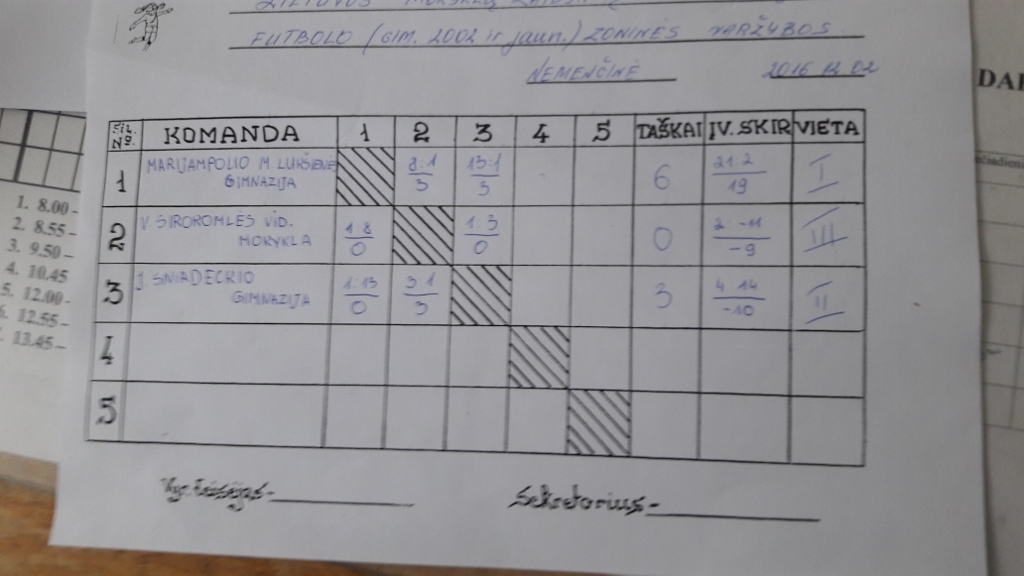 FUTBOLO (GIM. 2002 ir jaun.) ZONINĖS VARŽYBOS
NEMENČINĖ 2016 12 02
EIL. Nº. KOMANDA 1 2 3 4 5 TAŠKAI ĮV. SKIR VIETA
1 MARIJAMPOLIO M. LUKŠIENĖS GIMNAZIJA 8:1 13:1 6 21:2 I
3 3 19
2 V. SIROROMLĖS VID. MOKYKLA 1 8 1:3 0 2:-11 III
0 0 -9
3 J. SNIADECKIO GIMNAZIJA 1:13 3 1 3 4 14 II
0 3 -10
4
5
Vyr. teisėjas-
Sekretorius-
DAR
1. 8.00 -
2. 8.55 -
3. 9.50 -
4. 10.45
5. 12.00-
6. 12.55 -
13.45 -